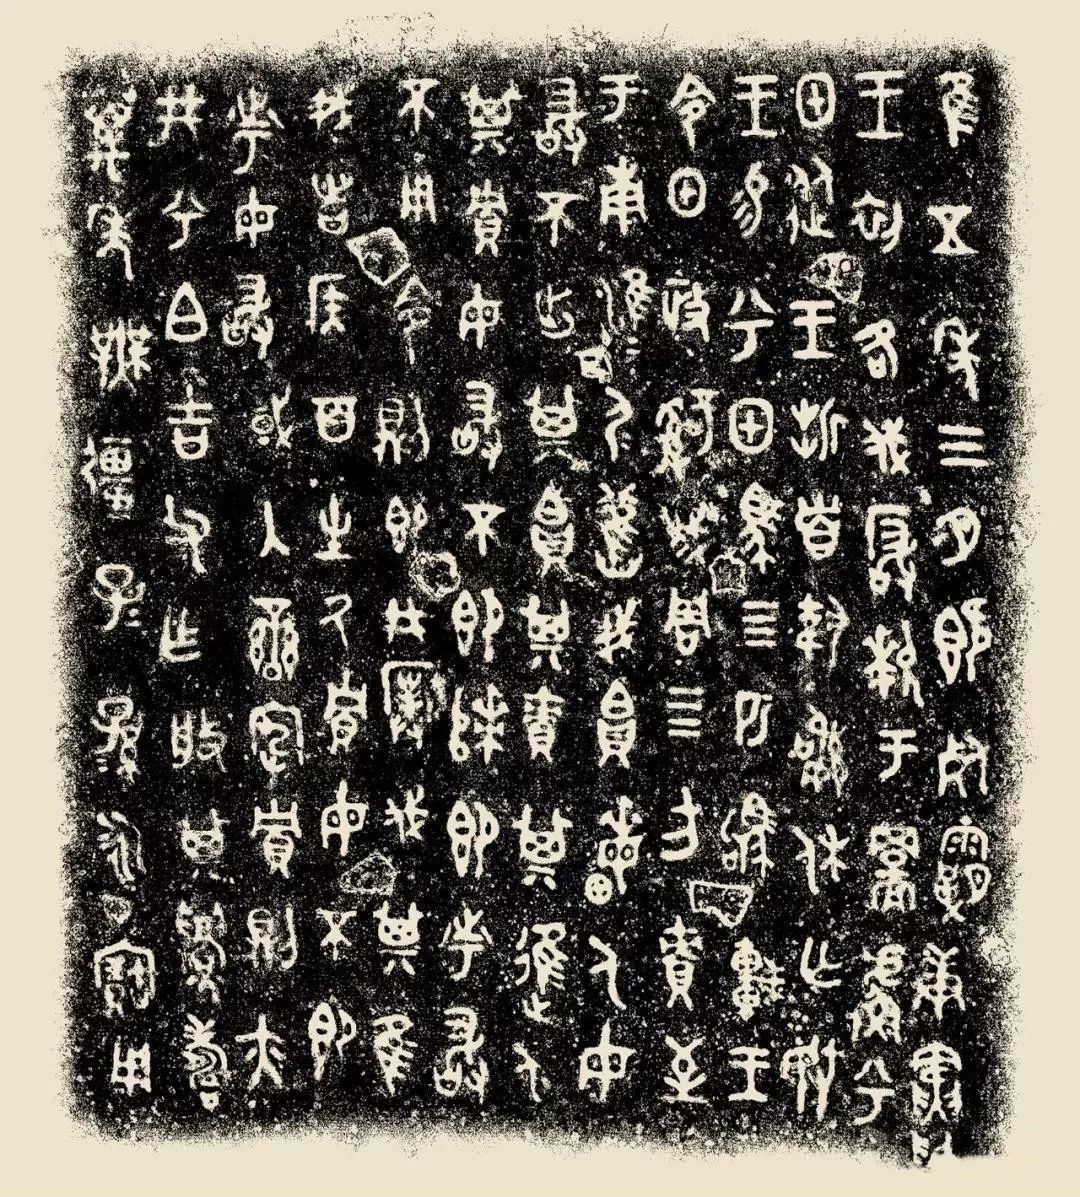 隹五年三月既死霸庚寅
王初各伐玁狁于𩫨𧁑兮
甲從王折首執訊休亡敃
王易兮甲馬四匹駒車王
令甲政𤔲成周四方責至
于南淮尸淮尸舊我帛畮人毋
敢不出其帛其責其進人
其貯毋敢不即次即市敢
不用令則即井撲伐其隹
我者侯百生厥貯毋不即
市毋敢或入蠻宄貯則亦
井兮白吉父乍般其眉壽
萬年無疆子子孫孫永寶用